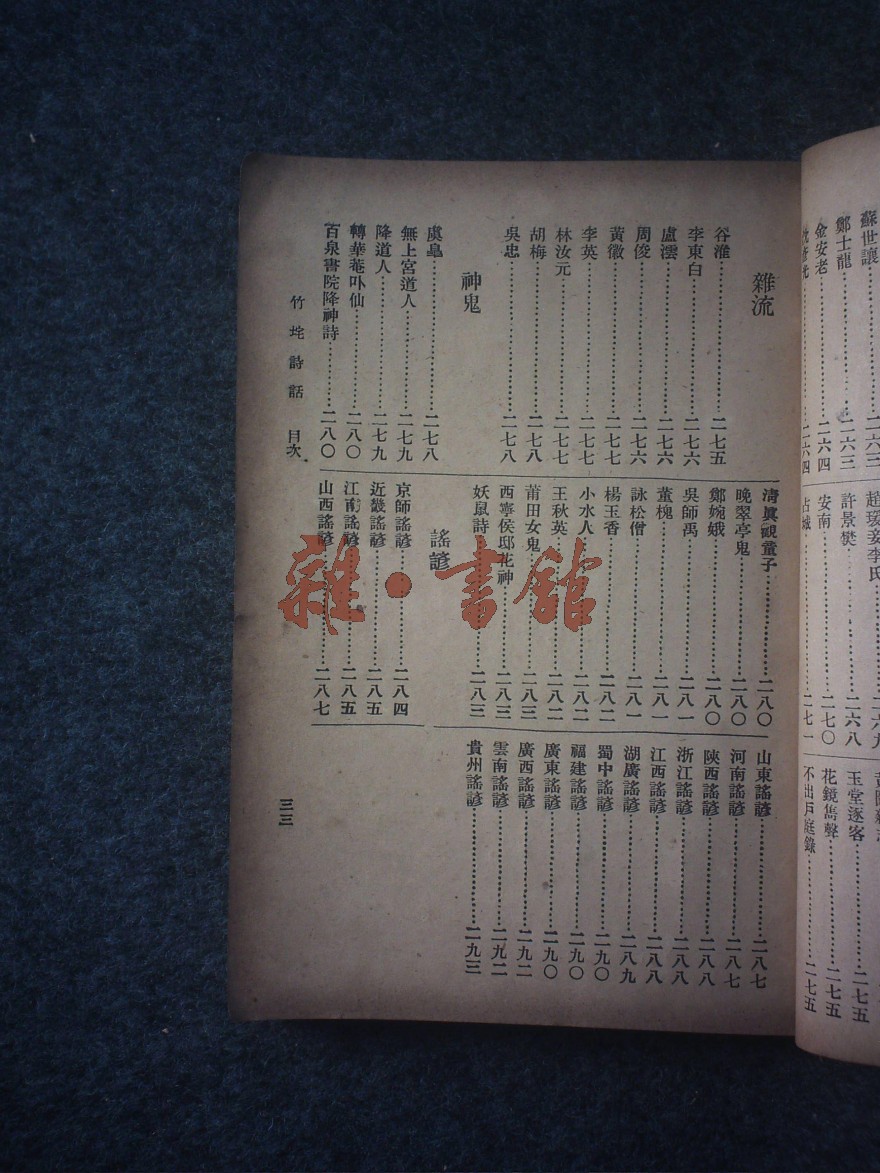 蘇世讓…………二六三
鄭士龍…………二六三
金安老…………二六四
二六四
趙瑗妾李氏
許景樊…………二六八
安南…………二七〇
占城…………二七一
玉堂逐客…………二七五
花鏡雋聲…………二七五
不出戶庭錄…………二七五
雜流
谷淮…………二七五
李東白…………二七六
盧澐…………二七六
周俊…………二七六
黃徽…………二七七
李英…………二七七
林汝元…………二七七
胡梅…………二七八
吳忠…………二七八
神鬼
虞臯…………二七八
無上宮道人…………二七九
降道人…………二七九
轉華菴卟仙…………二八〇
百泉書院降神詩…………二八〇
清眞觀童子…………二八〇
晚翠亭鬼…………二八〇
鄭婉娥…………二八〇
吳師禹…………二八一
董槐…………二八一
詠松僧…………二八一
楊玉香…………二八二
小水人…………二八二
王秋英…………二八二
莆田女鬼…………二八三
西寧侯邸花神…………二八三
妖鼠詩…………二八三
謠諺
京師謠諺…………二八四
近畿謠諺…………二八五
江南謠諺…………二八五
山西謠諺…………二八七
山東謠諺…………二八七
河南謠諺…………二八七
陝西謠諺…………二八八
浙江謠諺…………二八八
江西謠諺…………二八八
湖廣謠諺…………二八九
蜀中謠諺…………二九〇
福建謠諺…………二九〇
廣東謠諺…………二九〇
廣西謠諺…………二九二
雲南謠諺…………二九二
貴州謠諺…………二九三
竹垞詩話 目次
三三
雜·書館